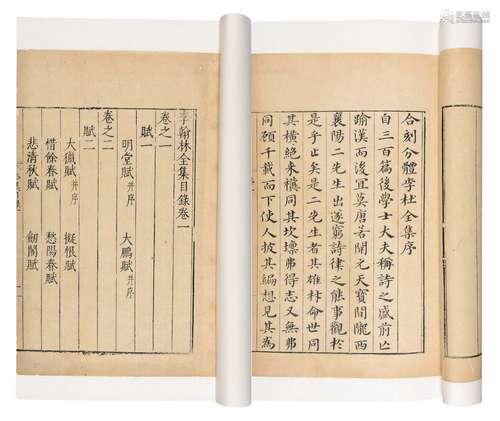 合刻分體李杜全集序
自三百篇後學士大夫稱詩之盛前亡
踰漢而後冝莫唐若開元天寶間隴西
襄陽二先生出遂窮詩律之能事觀於
是乎止矣是二先生者其雄材命世同
其橫絕來禩同其坎壈弗得志又無弗
同顧千載而下使人披其編想見其為
李翰林全集目錄卷一
卷之一
賦一
明堂賦并序 大鵬賦并序
卷之二
賦二
大獵賦并序 擬恨賦
惜餘春賦 愁陽春賦
悲清秋賦 劒閣賦